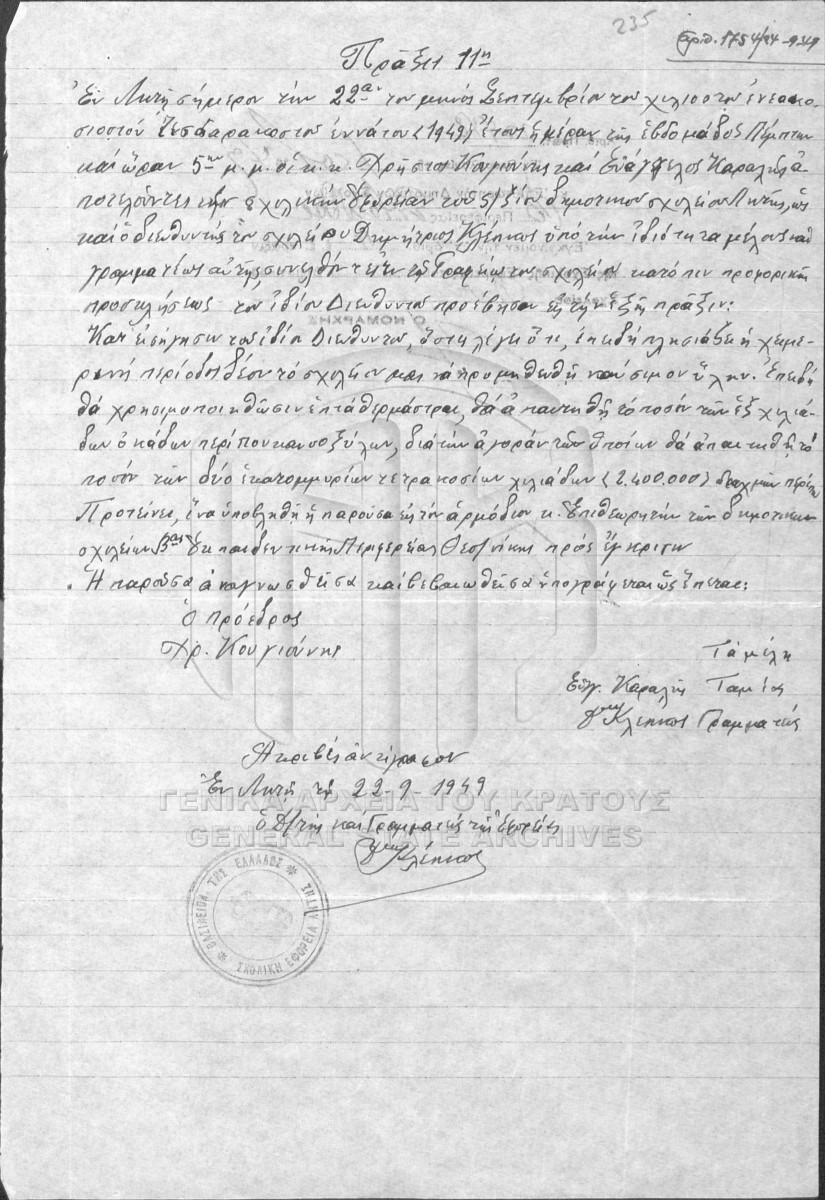 235
ἀριθ. 1754/24-9-49
Πρᾶξις 11η
Ἐν Λητῇ σήμερον τήν 22αν τοῦ μηνός Σεπτεμβρίου τοῦ χιλιοστοῦ ἐνεακο-
σιοστοῦ τεσσαρακοστοῦ ἐννάτου (1949) ἔτους ἡμέραν τῆς ἑβδομάδος Πέμπτην
καί ὥραν 5ην μ.μ. οἱ κ.κ. Χρῆστος Κουγιούνης καί Εὐάγγελος Καραλῆς ἀ-
ποτελοῦντες τήν σχολικήν ἐφορείαν τοῦ 5/ξίου δημοτικοῦ σχολείου Λητῆς, ὡς
καί ὁ διευθυντής τοῦ σχολείου Δημήτριος Κλέπκος ὑπό τήν ἰδιότητα μέλους καί
γραμματέως αὐτῆς συνελθόντες ἐν τῷ Γραφείῳ τοῦ σχολείου κατόπιν προφορικῆς
προσκλήσεως τοῦ ἰδίου Διευθυντοῦ προέβησαν εἰς τήν ἑξῆς πρᾶξιν:
Κατ' εἰσήγησιν τοῦ ἰδίου Διευθυντοῦ, ὅστις λέγει ὅτι, ἐπειδή πλησιάζει ἡ χειμε-
ρινή περίοδος δέον τό σχολεῖον μας νά προμηθευθῇ καύσιμον ὕλην. Ἐπειδή
θά χρησιμοποιηθῶσιν ἑπτά θερμάστραι, θά ἀπαιτηθῇ τό ποσόν τῶν ἕξ χιλιά-
δων ὀκάδων περίπου καυσοξύλων, διά τήν ἀγοράν τῶν ὁποίων θά ἀπαιτηθῇ τό
ποσόν τῶν δύο ἑκατομμυρίων τετρακοσίων χιλιάδων (2.400.000) δραχμῶν περίπου
Προτείνει, ἵνα ὑποβληθῇ ἡ παροῦσα εἰς τόν ἁρμόδιον κ. Ἐπιθεωρητήν τῶν δημοτικῶν
σχολείων Βας Ἐκπαιδευτικῆς Περιφερείας Θεσ/νίκης πρός ἔγκρισιν
Ἡ παροῦσα ἀναγνωσθεῖσα καί βεβαιωθεῖσα ὑπογράφεται ὡς ἕπεται:
Ὁ Πρόεδρος
Χρ. Κουγιούνης
Τά μέλη
Εὐάγ. Καραλῆς Ταμίας
Δημ. Κλέπκος Γραμματεύς
Ἀκριβές ἀντίγραφον
Ἐν Λητῇ τῇ 22-9-1949
ὁ Δ/ντής καί Γραμματεύς τῆς Ἐφορείας
Δημ. Κλέπκος
ΓΕΝΙΚΑ ΑΡΧΕΙΑ ΤΟΥ ΚΡΑΤΟΥΣ
GENERAL STATE ARCHIVES
ΒΑΣΙΛΕΙΟΝ ΤΗΣ ΕΛΛΑΔΟΣ
ΣΧΟΛΙΚΗ ΕΦΟΡΕΙΑ ΛΗΤΗΣ